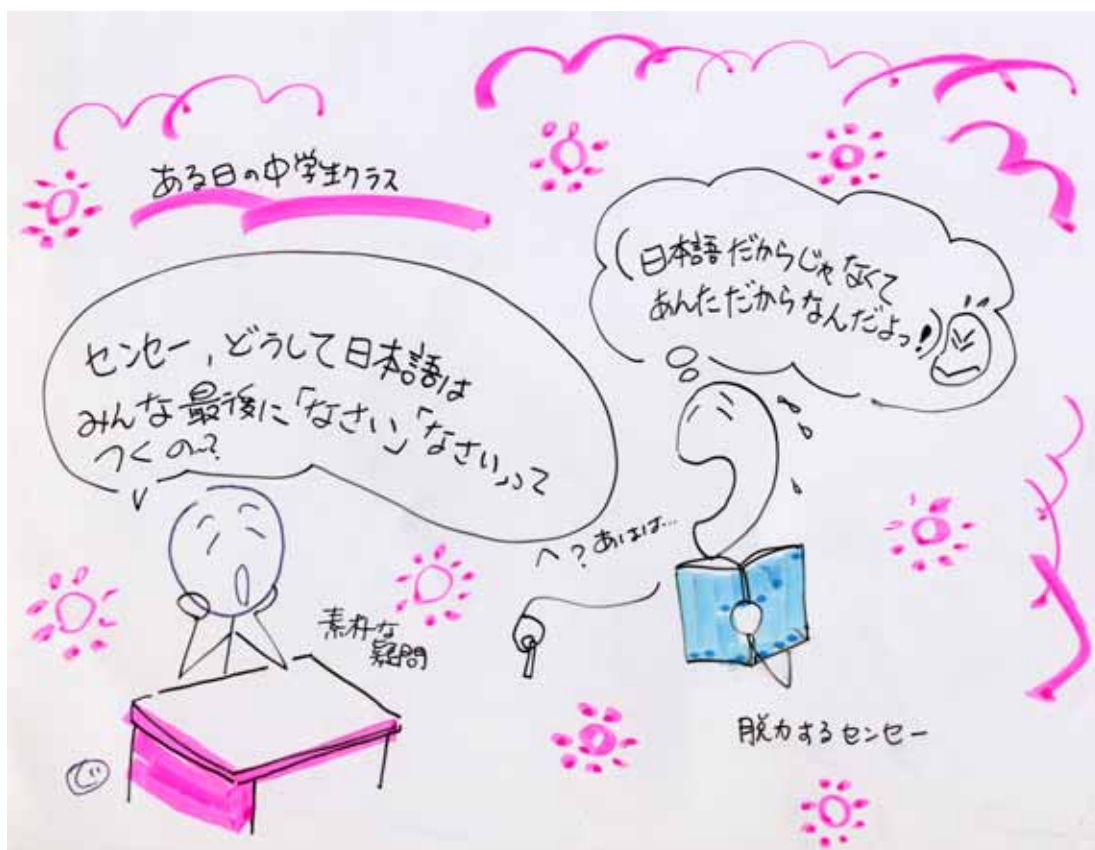 ある日の中学生クラス
センセー，どうして日本語は
みんな最後に「なさい」「なさい」って
つくの〜?
素朴な
疑問
(日本語だからじゃなくて
あんただからなんだよっ!)
へ?あはは…
脱力するセンセー